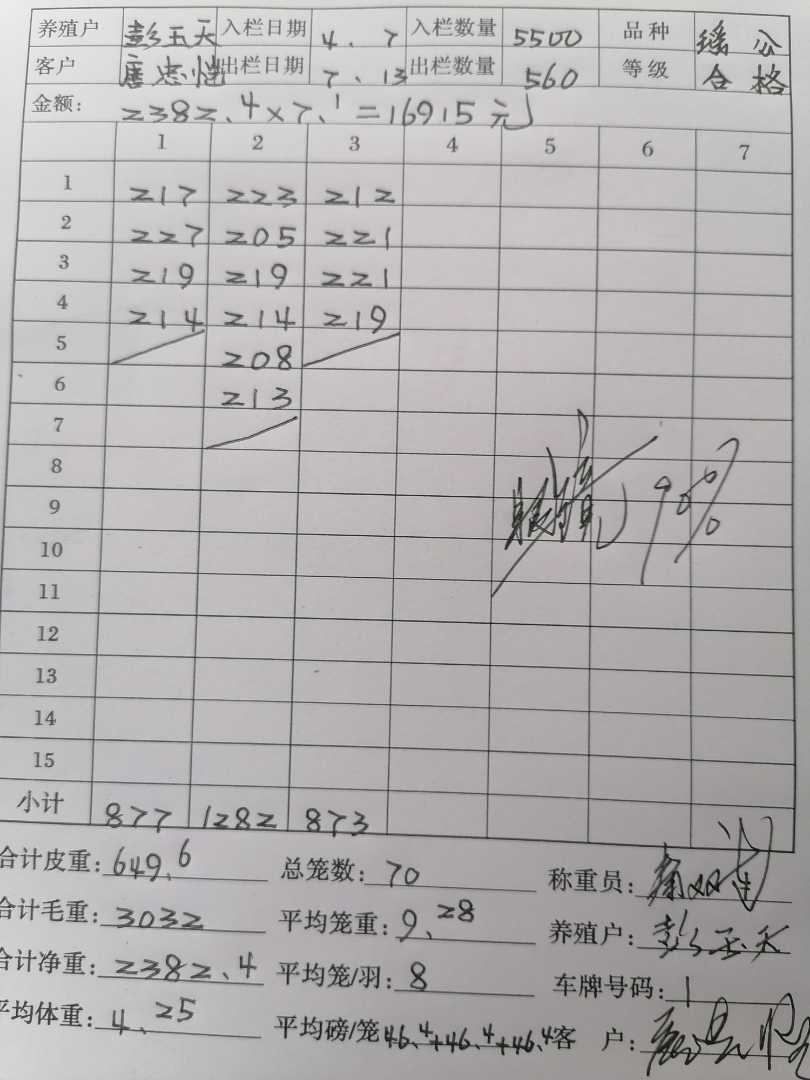 养殖户 彭玉天 入栏日期 4.7 入栏数量 5500 品种 瑶公
客户 唐忠恺 出栏日期 7.13 出栏数量 560 等级 合格
金额: 2382.4×7.1=16915元
1 2 3 4 5 6 7
1 217 223 212
2 227 205 221
3 219 219 221
4 214 214 219
5 208
6 213
7
8
9 90%
10
11
12
13
14
15
小计 877 1282 873
合计皮重: 649.6 总笼数: 70 称重员:
合计毛重: 3032 平均笼重: 9.28 养殖户: 彭玉天
合计净重: 2382.4 平均笼/羽: 8 车牌号码: 1
平均体重: 4.25 平均磅/笼 46.4+46.4+46.4 客户: